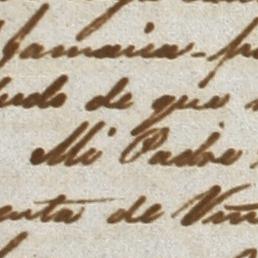 Jamaica - p
udo de que
Mi Padre
enta de Vm